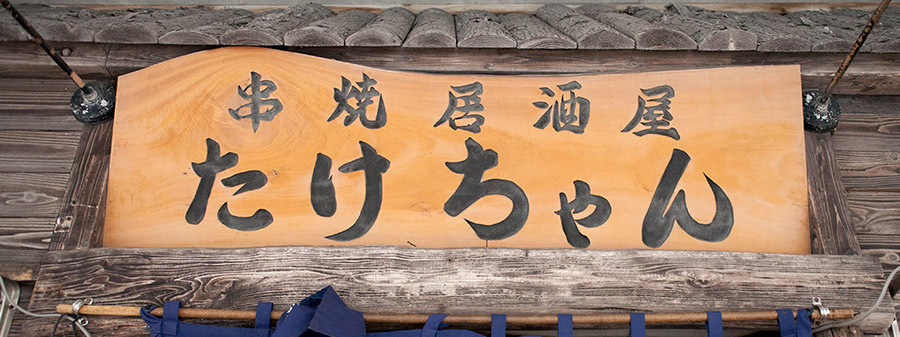 串焼居酒屋
たけちゃん